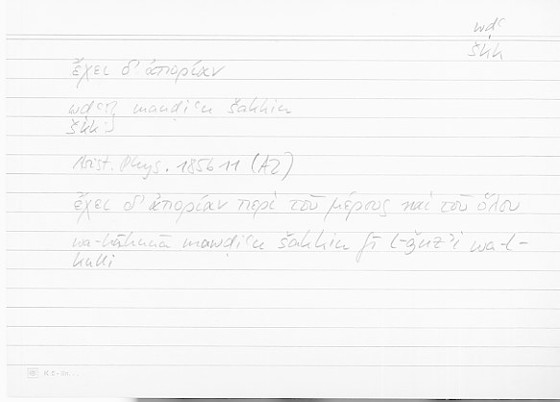 wdʿ
škk
ἔχει δ' ἀπορίαν
wdʿ mawḍiʿu šakkin
škk
Arist. Phys. 185b11 (A2)
ἔχει δ' ἀπορίαν περὶ τοῦ μέρους καὶ τοῦ ὅλου
wa-hāhunā mawḍiʿu šakkin fī l-ǧuzʾi wa-l-
kulli